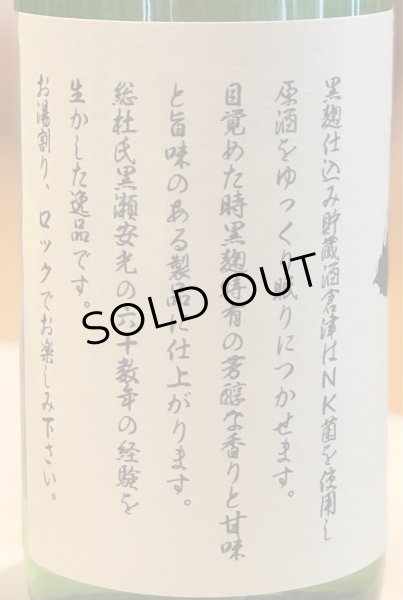 黒麹仕込み貯蔵酒倉津はNK菌を使用し
原酒をゆっくり眠りにつかせます。
目覚めた時黒麹特有の芳醇な香りと甘味
と旨味のある製品に仕上がります。
総杜氏黒瀬安光の六十数年の経験を
生かした逸品です。
お湯割り、ロックでお楽しみ下さい。
SOLD OUT